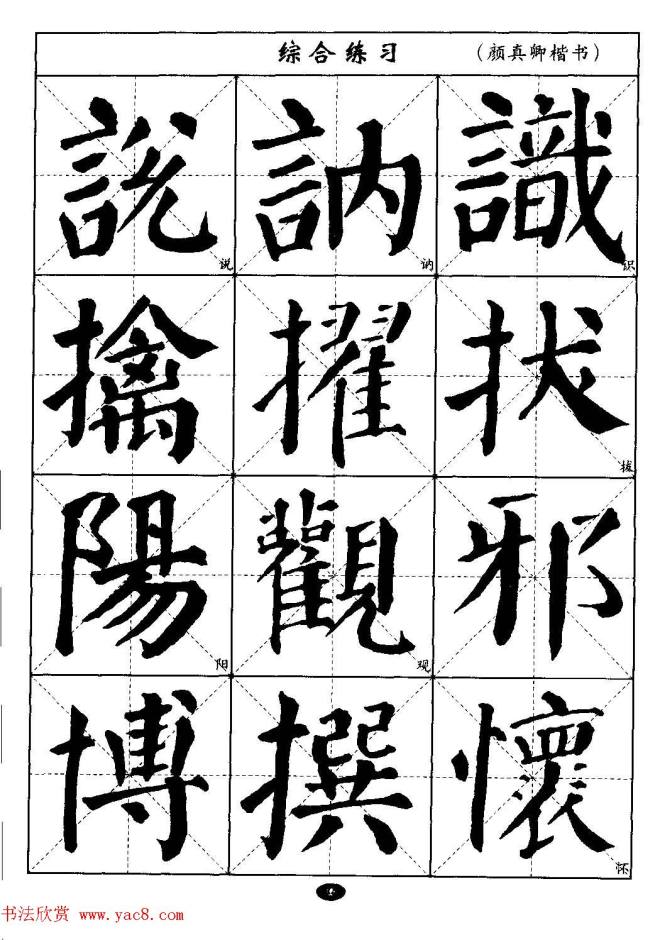 综合练习 （颜真卿楷书）
說 訥 識
说 讷 识
擒 擢 拔
拔
陽 觀 邪
阳 观
博 撰 懷
怀
书法欣赏 www.yac8.com